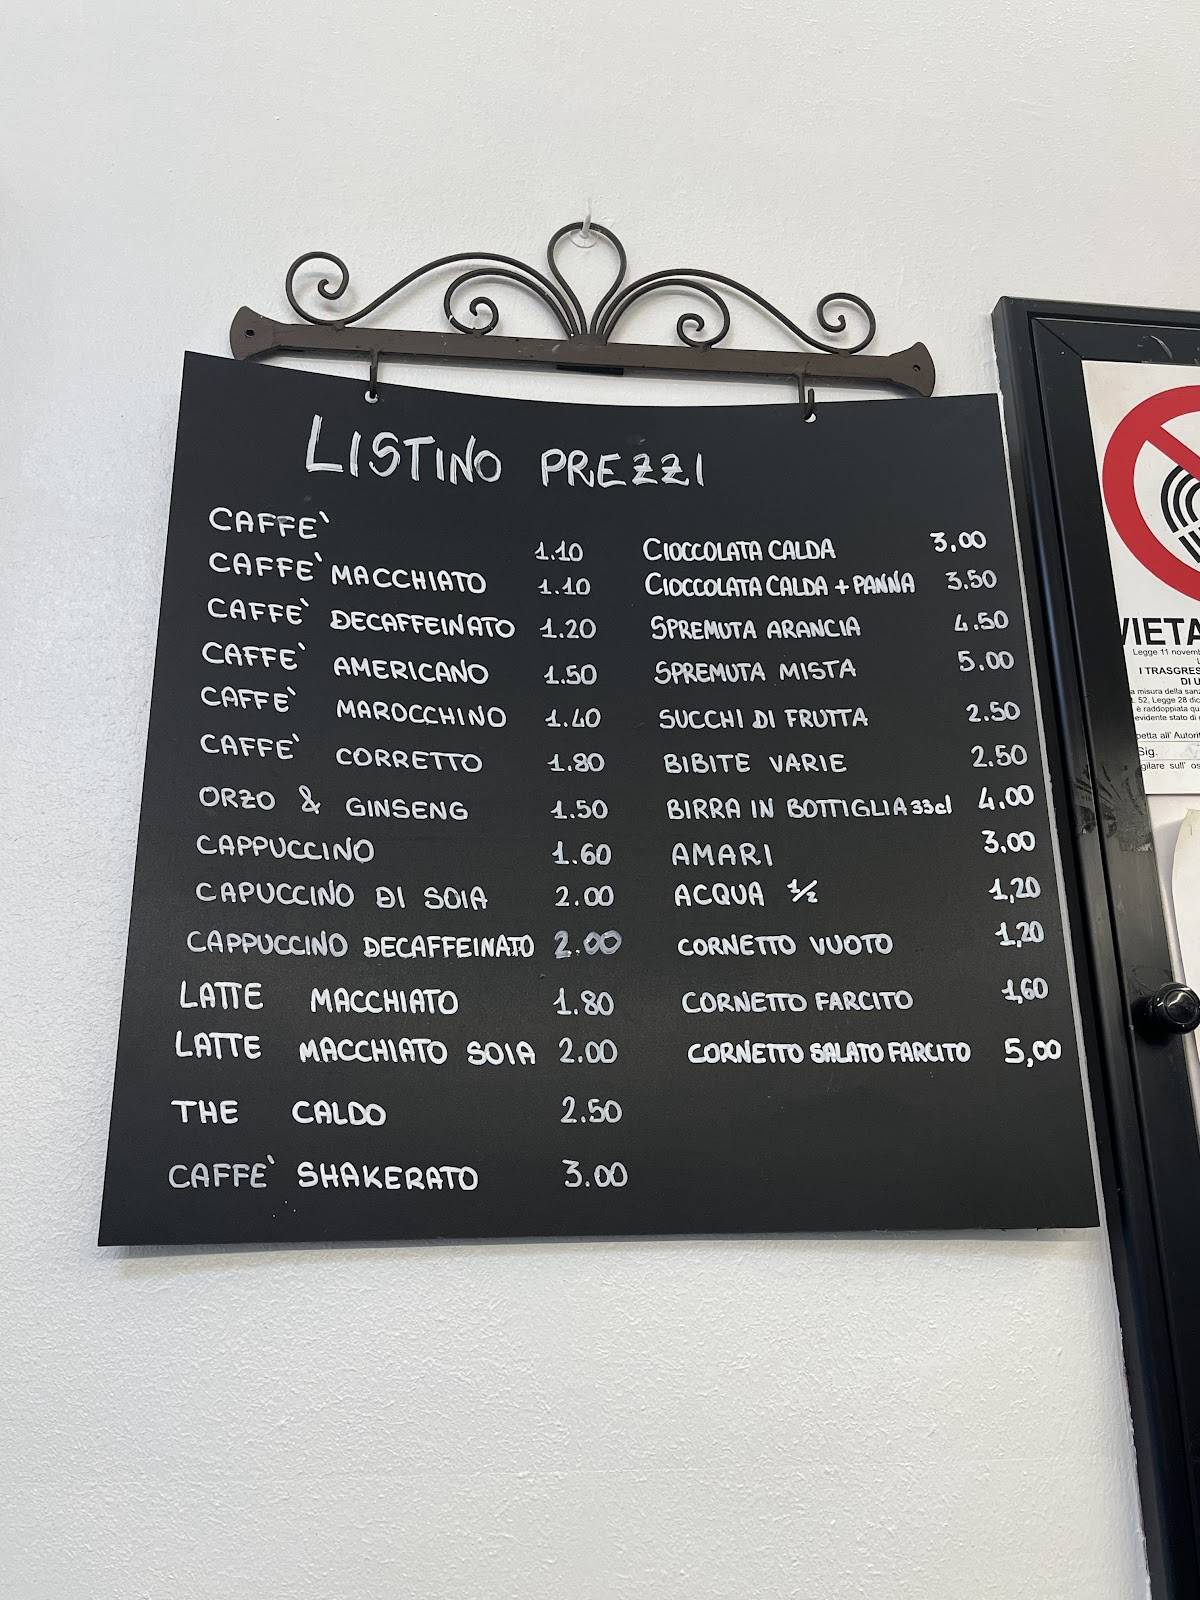 LISTINO PREZZI
CAFFE' 1.10
CAFFE' MACCHIATO 1.10
CAFFE' DECAFFEINATO 1.20
CAFFE' AMERICANO 1.50
CAFFE' MAROCCHINO 1.40
CAFFE' CORRETTO 1.80
ORZO & GINSENG 1.50
CAPPUCCINO 1.60
CAPUCCINO DI SOIA 2.00
CAPPUCCINO DECAFFEINATO 2.00
LATTE MACCHIATO 1.80
LATTE MACCHIATO SOIA 2.00
THE CALDO 2.50
CAFFE' SHAKERATO 3.00
CIOCCOLATA CALDA 3,00
CIOCCOLATA CALDA + PANNA 3.50
SPREMUTA ARANCIA 4.50
SPREMUTA MISTA 5.00
SUCCHI DI FRUTTA 2.50
BIBITE VARIE 2.50
BIRRA IN BOTTIGLIA 33cl 4.00
AMARI 3,00
ACQUA 1/2 1,20
CORNETTO VUOTO 1,20
CORNETTO FARCITO 1,60
CORNETTO SALATO FARCITO 5,00
VIETA
Legge 11 novemb
I TRASGRES
DI U
a misura della sanz
. 52, Legge 28 dic
è raddoppiata qu
evidente stato di
petta all' Autorit
Sig.
gilare sull' os